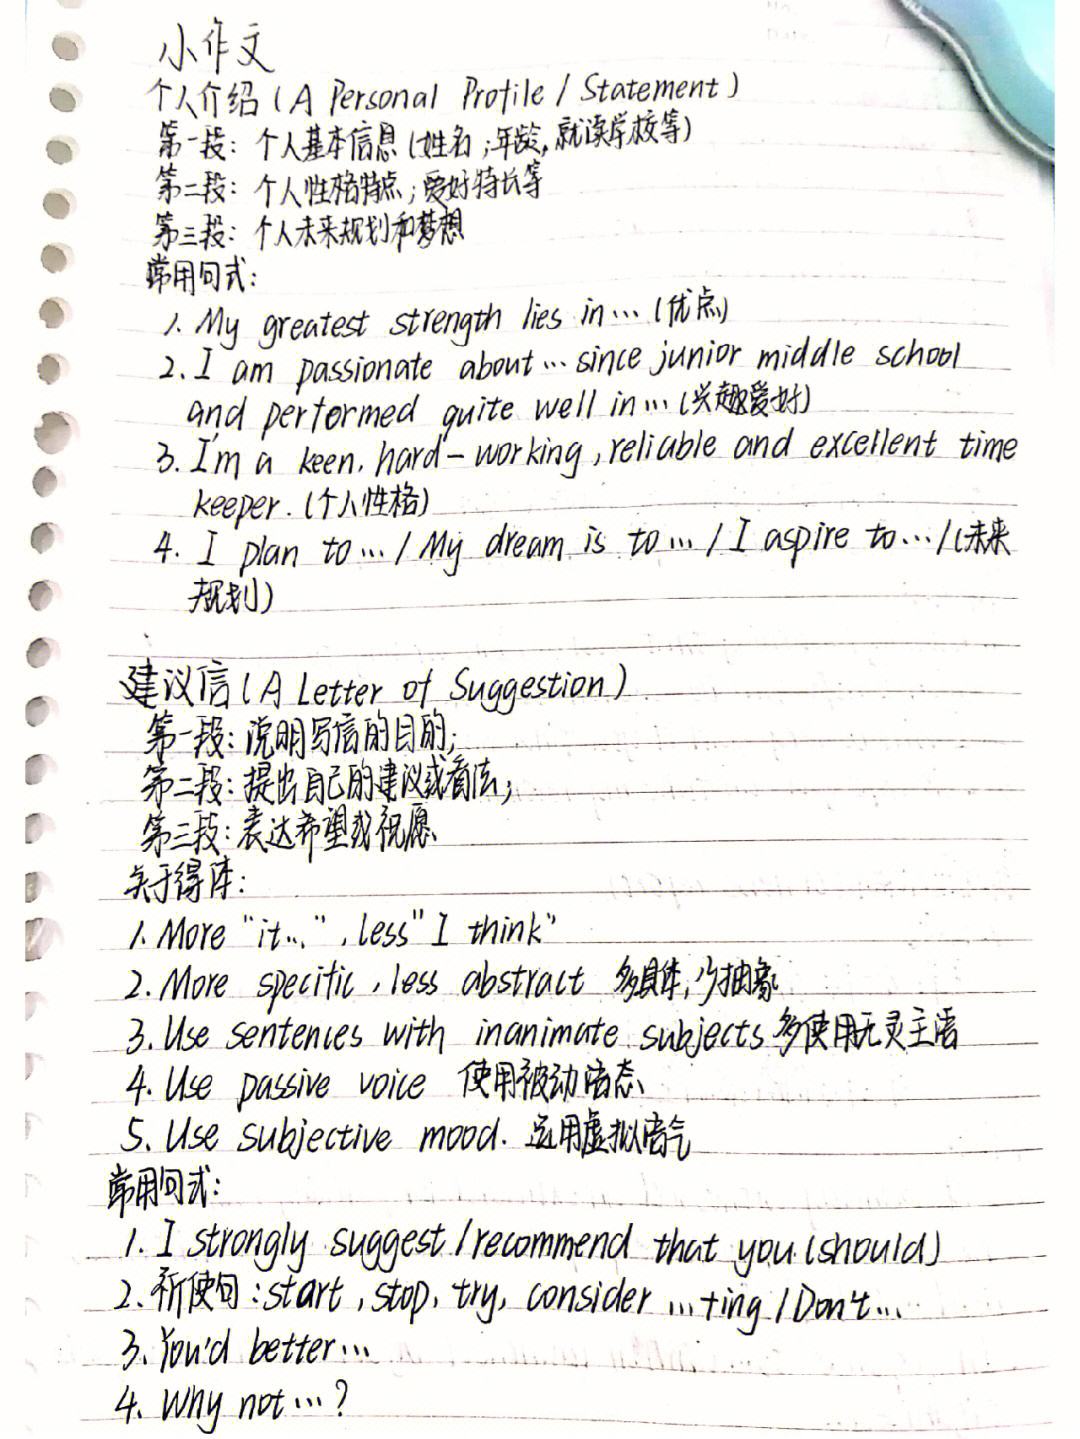 小作文
个人介绍(A Personal Profile / Statement)
第一段: 个人基本信息(姓名;年龄,就读学校等)
第二段: 个人性格特点;爱好特长等
第三段: 个人未来规划和梦想
常用句式:
1. My greatest strength lies in…(优点)
2. I am passionate about…since junior middle school
and performed quite well in…(兴趣爱好)
3. I'm a keen, hard-working, reliable and excellent time
keeper.(个人性格)
4. I plan to… / My dream is to… / I aspire to… /(未来
规划)
建议信(A Letter of Suggestion)
第一段:说明写信的目的;
第二段:提出自己的建议或看法;
第三段:表达希望或祝愿.
关于得体:
1. More "it…", less "I think"
2. More specific, less abstract 多具体,少抽象
3. Use sentences with inanimate subjects 多使用无灵主语
4. Use passive voice 使用被动语态
5. Use subjective mood. 运用虚拟语气
常用句式:
1. I strongly suggest/recommend that you (should)
2. 祈使句:start, stop, try, consider …+ing / Don't…
3. You'd better…
4. Why not…?